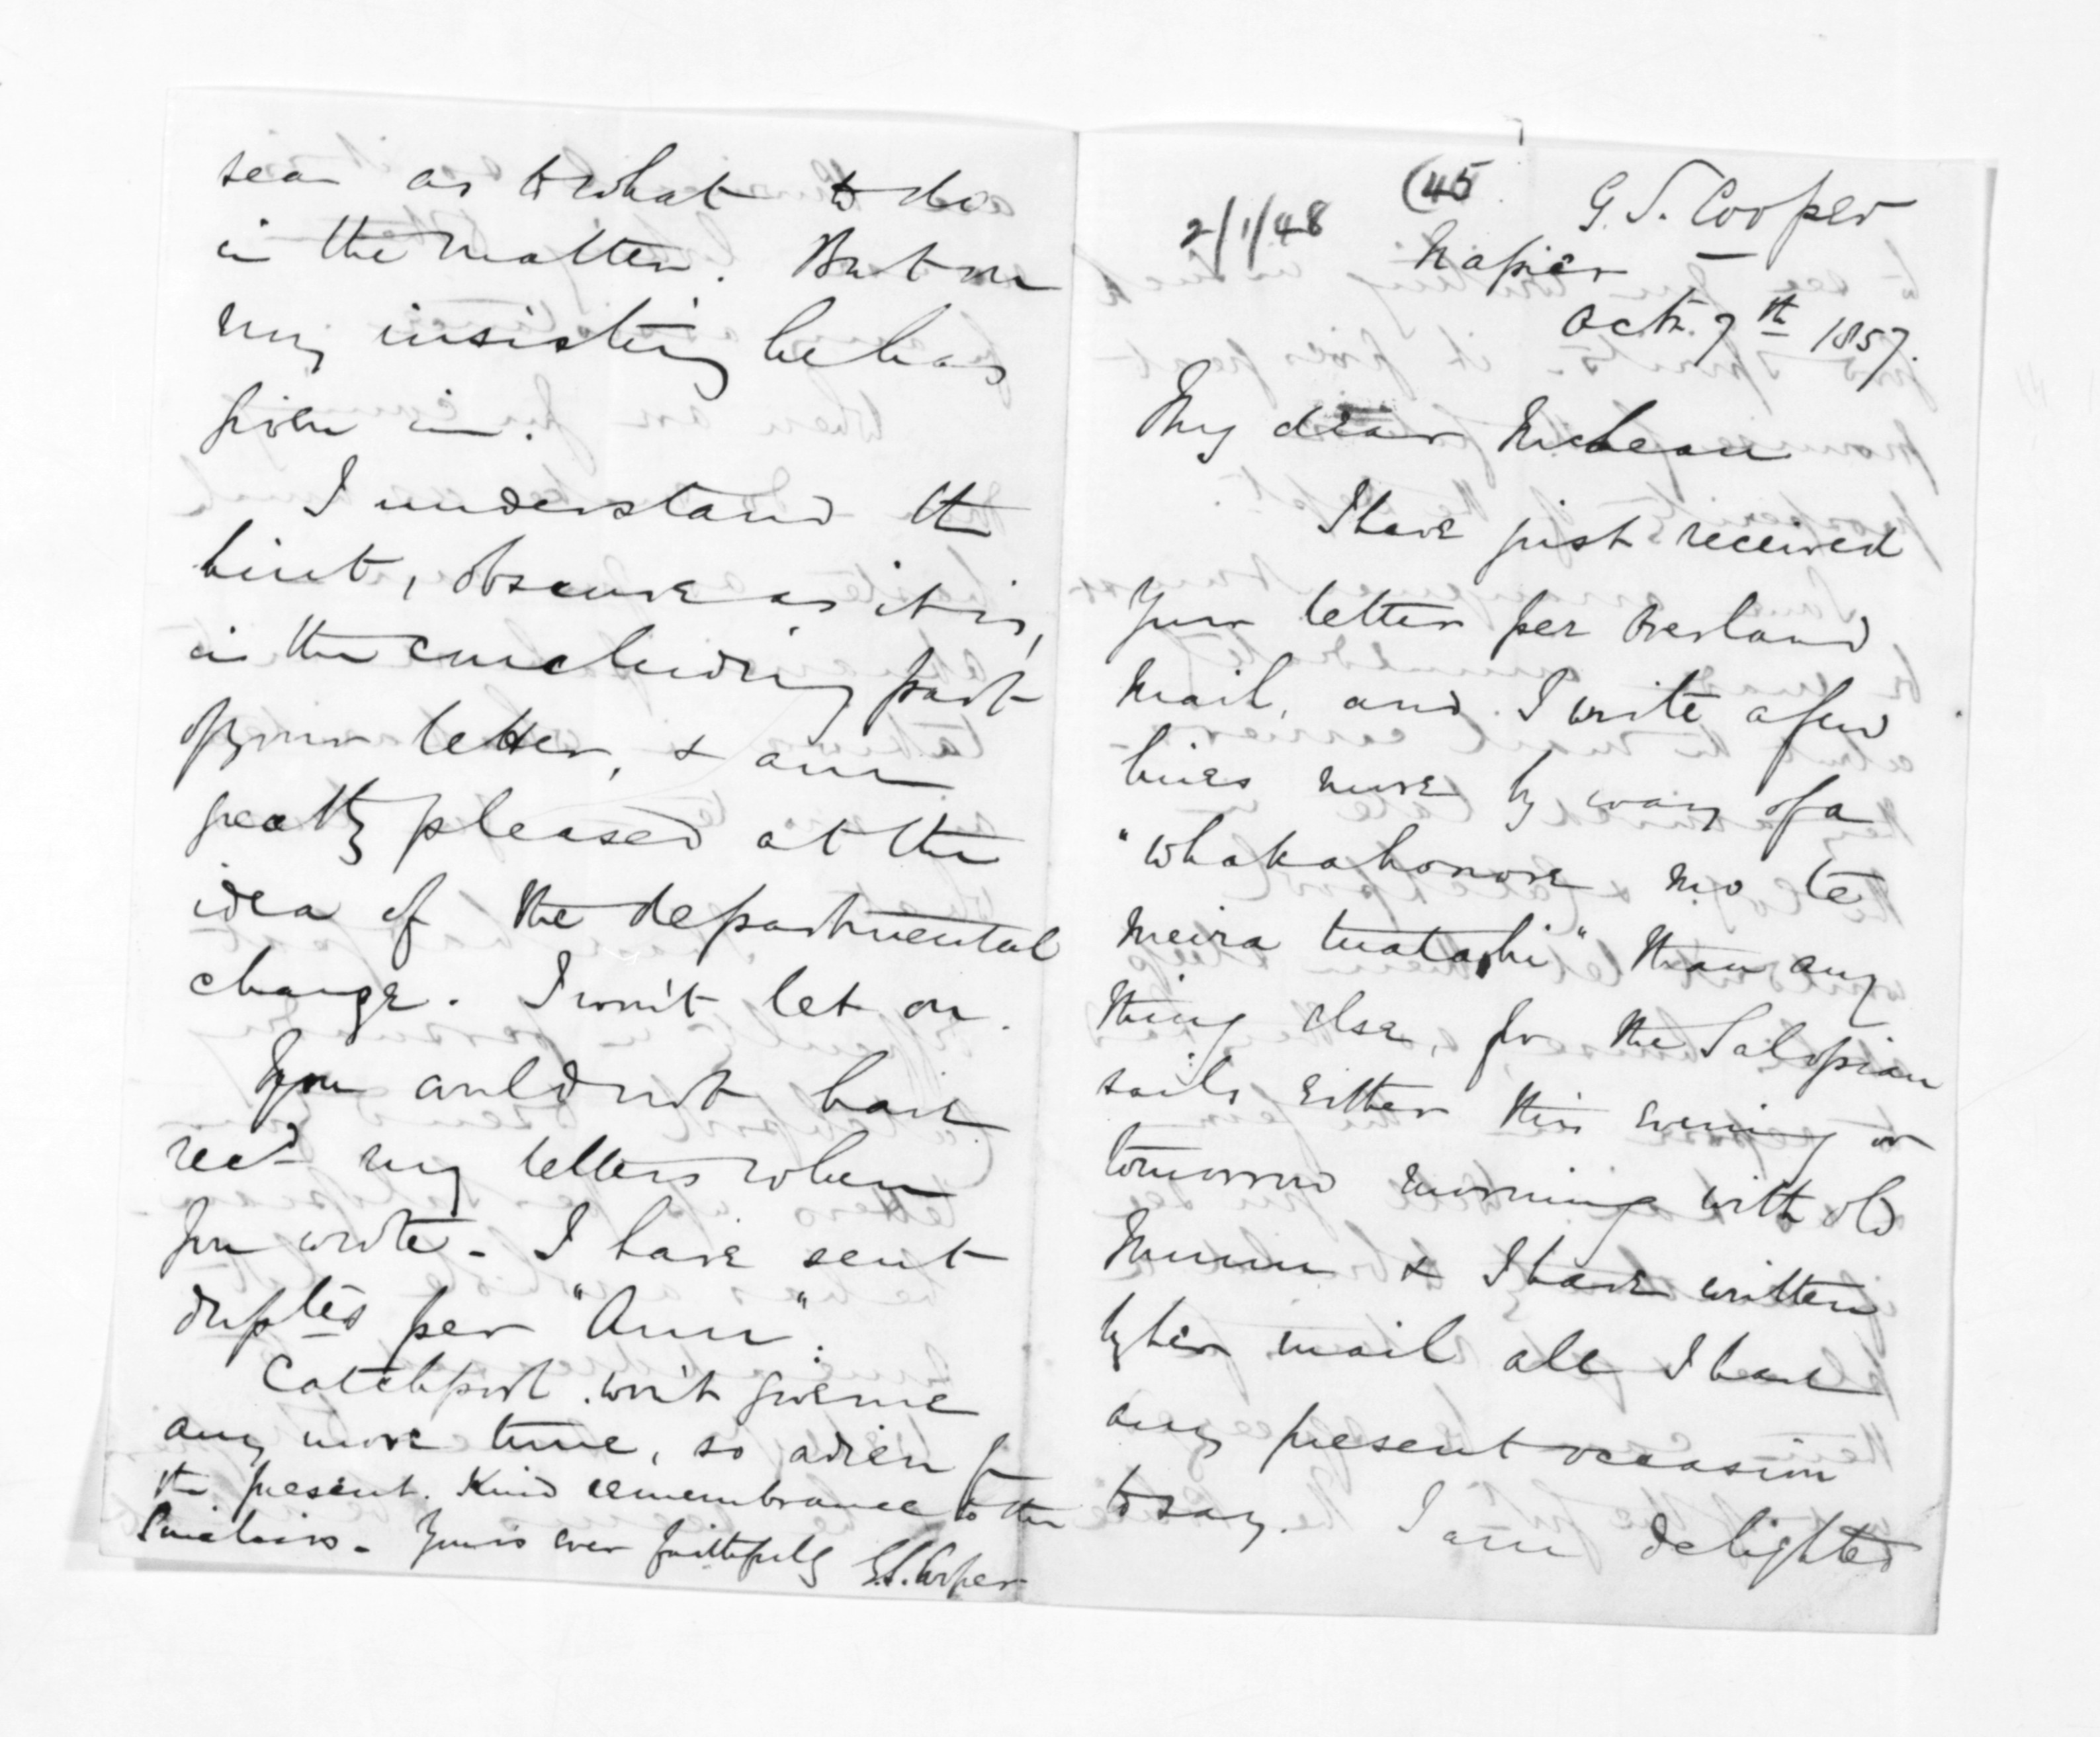 (45
G. S. Cooper
2/1/48
Napier
Octr. 7th 1857.
My dear McLean
I have just received
your letter per overland
mail, and I write a few
lines more by way of a
"whakahonore mo te
meira tuatahi" than any
thing else, for the Salopian
sails either this evening or
tomorrow morning with old
Munn & I have written
by her mail all I have
any present occasion
to say. I am delighted
sea as to what to do
in the matter. But on
my insisting he has
given in.
I understand the
hint, obscure as it is,
in the concluding part
of your letter, & am
greatly pleased at the
idea of the departmental
change. I won't let on.
You could not have
recd my letters when
you wrote - I have sent
duptes per "Ann".
Catchpool won't give me
any more time, so adieu for
the present. Kind remembrance to the
Yours ever faithfully G.S. Cooper